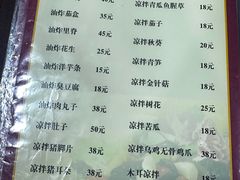 凉拌青瓜鱼腥草 18元
油炸茄盒 35元
凉拌茄子 18元
油炸里脊 45元
凉拌秋葵 20元
油炸花生 25元
凉拌青笋 18元
油炸洋芋条 15元
凉拌金针菇 18元
油炸臭豆腐 18元
凉拌树花 25元
油炸肉丸子 38元
凉拌苦瓜 18元
凉拌肚子 50元
凉拌乌鸡无骨鸡爪 38元
凉拌猪脚片 38元
木耳凉拌 18元
凉拌猪耳朵 38元